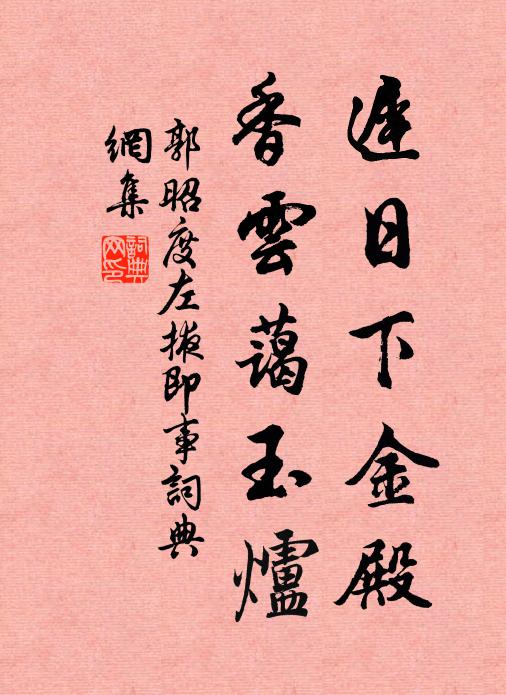 遲日下金殿
香雲藹玉爐
郭昭度左掖即事詞典
網集
詞典网印